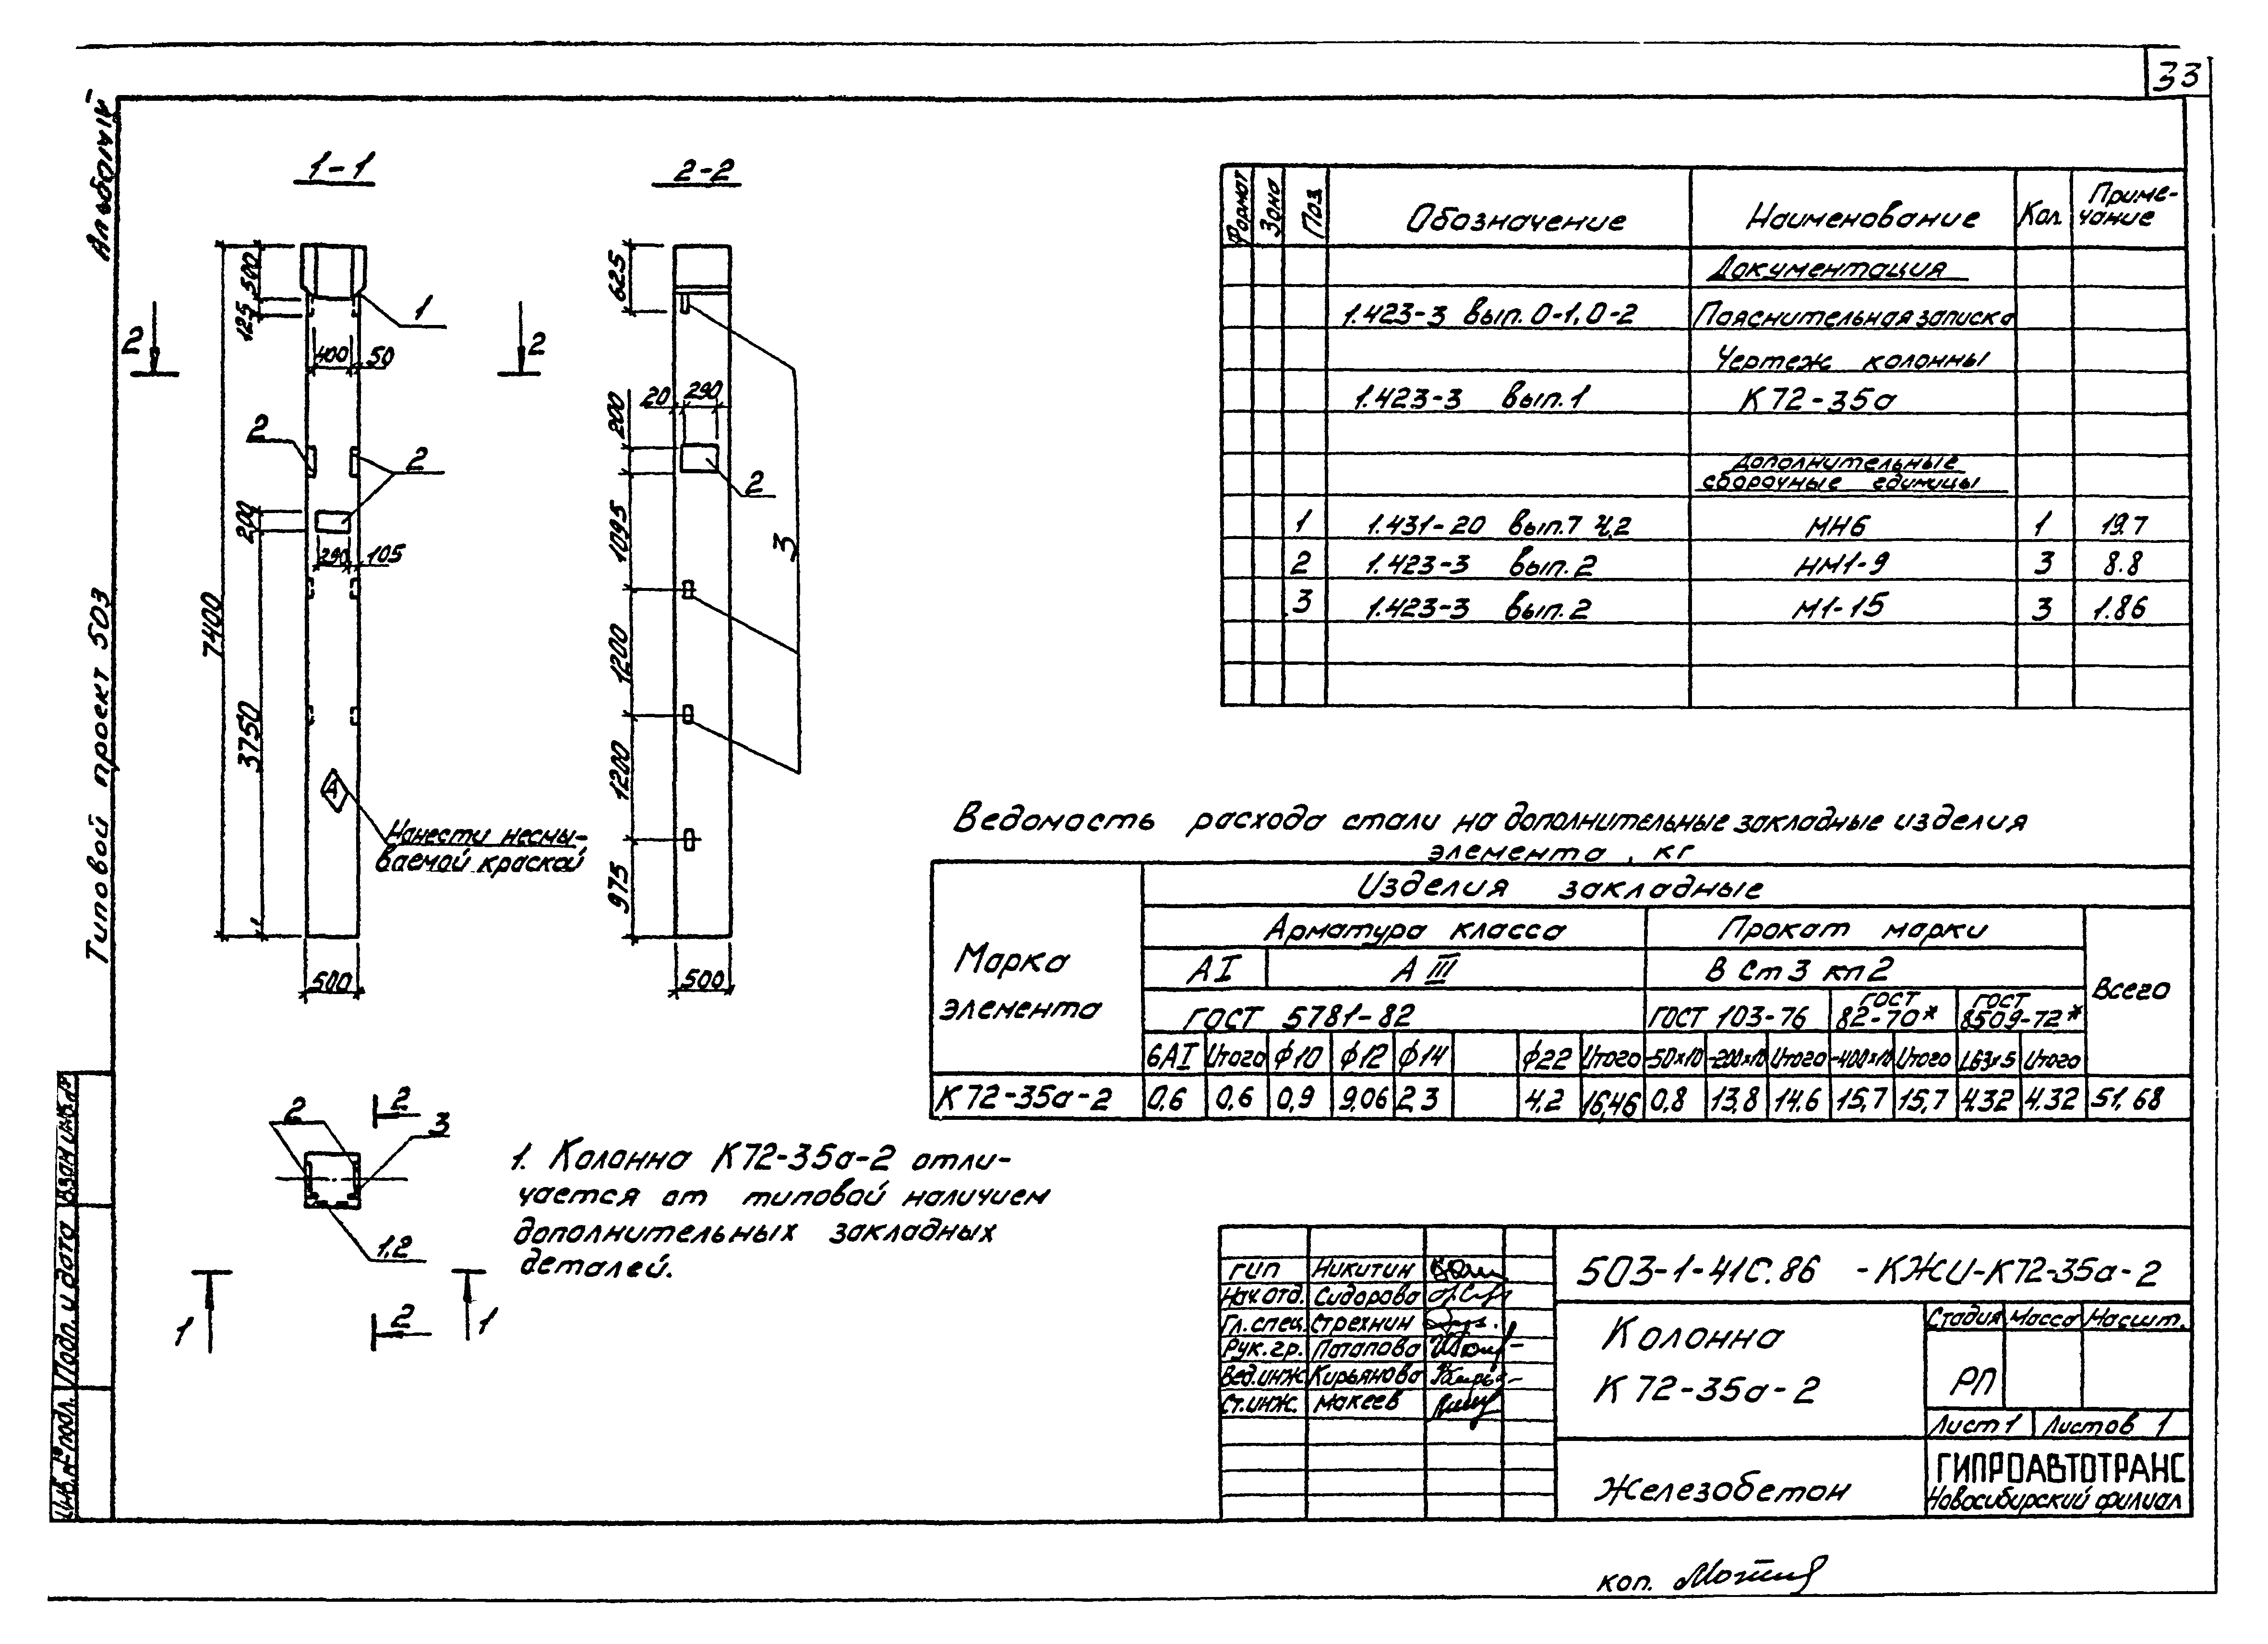 33
Альбом IV
Типовой проект 503
1-1
2-2
500
125
400
50
1
2
2
2
2
200
290
105
7400
3750
А
Нанести несмы-
ваемой краской
500
625
20
290
200
2
1095
3
1200
1200
975
500
2
2
3
1,2
2
1
1
1. Колонна К72-35а-2 отли-
чается от типовой наличием
дополнительных закладных
деталей.
Формат Зона Поз. Обозначение Наименование Кол. Приме-
чание
Документация
1.423-3 вып. 0-1, 0-2 Пояснительная записка
Чертеж колонны
1.423-3 вып. 1 К72-35а
Дополнительные
сборочные единицы
1 1.431-20 вып. 7 ч.2 МН6 1 19.7
2 1.423-3 вып. 2 НМ1-9 3 8.8
3 1.423-3 вып. 2 М1-15 3 1.86
Ведомость расхода стали на дополнительные закладные изделия
элемента, кг
Марка
элемента
Изделия закладные
Арматура класса Прокат марки
Всего
АI АIII В Ст3 кп2
ГОСТ 5781-82 ГОСТ 103-76 ГОСТ 82-70* ГОСТ 8509-72*
6АI Итого ф10 ф12 ф14 ф22 Итого -50х10 -200х10 Итого -400х10 Итого L63х5 Итого
К72-35а-2 0,6 0,6 0,9 9,06 2,3 4,2 16,46 0,8 13,8 14.6 15,7 15,7 4.32 4.32 51,68
ГИП Никитин
Нач.отд. Сидорова
Гл.спец. Стрехнин
Рук.гр. Потапова
Вед.инж. Кирьянова
Ст.инж. Макеев
503-1-41С.86 -КЖИ-К72-35а-2
Колонна
К72-35а-2
Стадия Масса Масшт.
РП
Лист 1 Листов 1
Железобетон
ГИПРОАВТОТРАНС
Новосибирский филиал
Взам инв.№
Подп. и дата
Инв.№ подл.
коп.